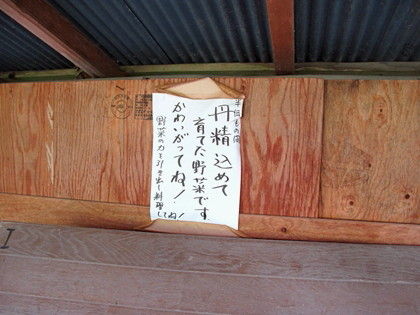 丹精込めて
育てた野菜です
かわいがってね!
野菜の力を引き出し料理してね!